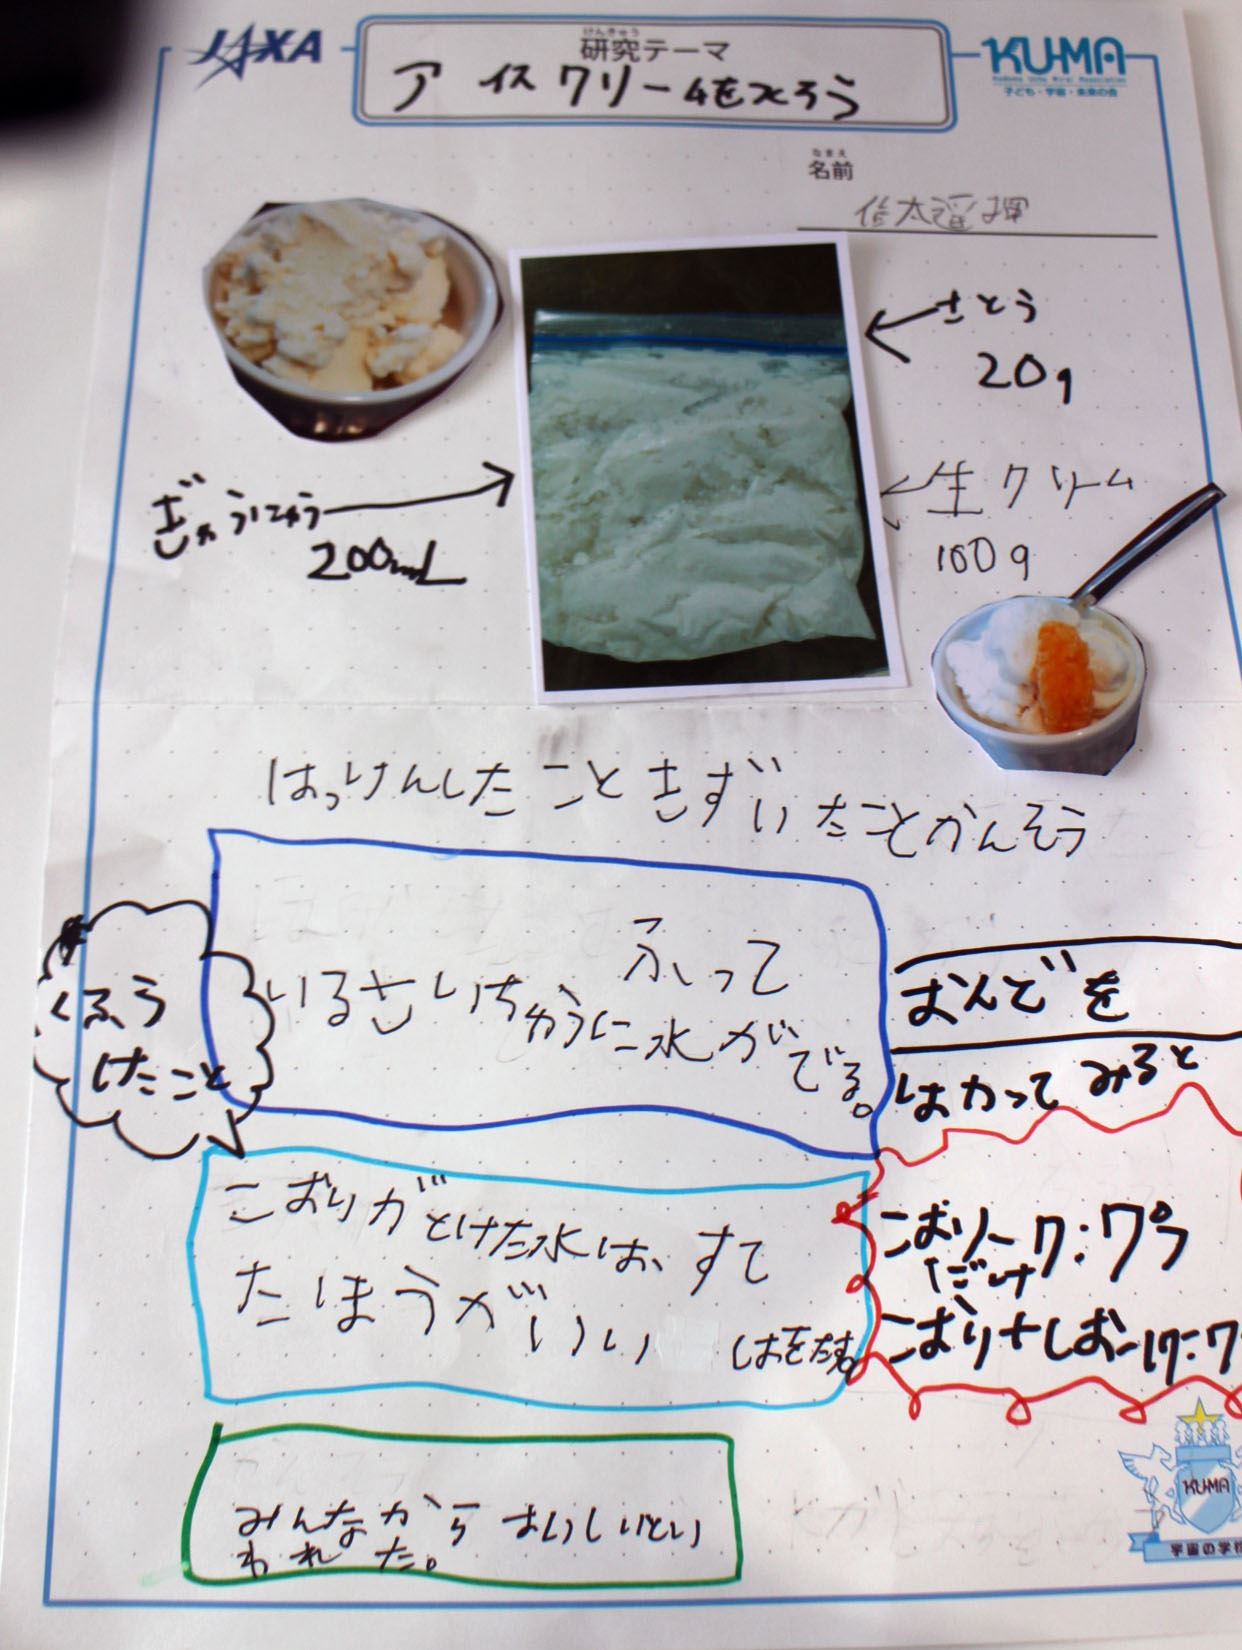 JAXA
けんきゅう
研究テーマ
KU-MA
子ども・宇宙・未来の会
アイスクリームをつくろう
なまえ
名前
さとう
20g
ぎゅうにゅう
200mL
生クリーム
100g
はっけんしたこときずいたことかんそう
ふって
いるさいちゅうに水が
でる。
くふう
したこと
おんどを
はかってみると
こおりがとけた水は、すて
たほうがいい
しおをたす。
こおり
だけ
こおり+しお
みんなからおいしいとい
われた。
KUMA
宇宙の学校